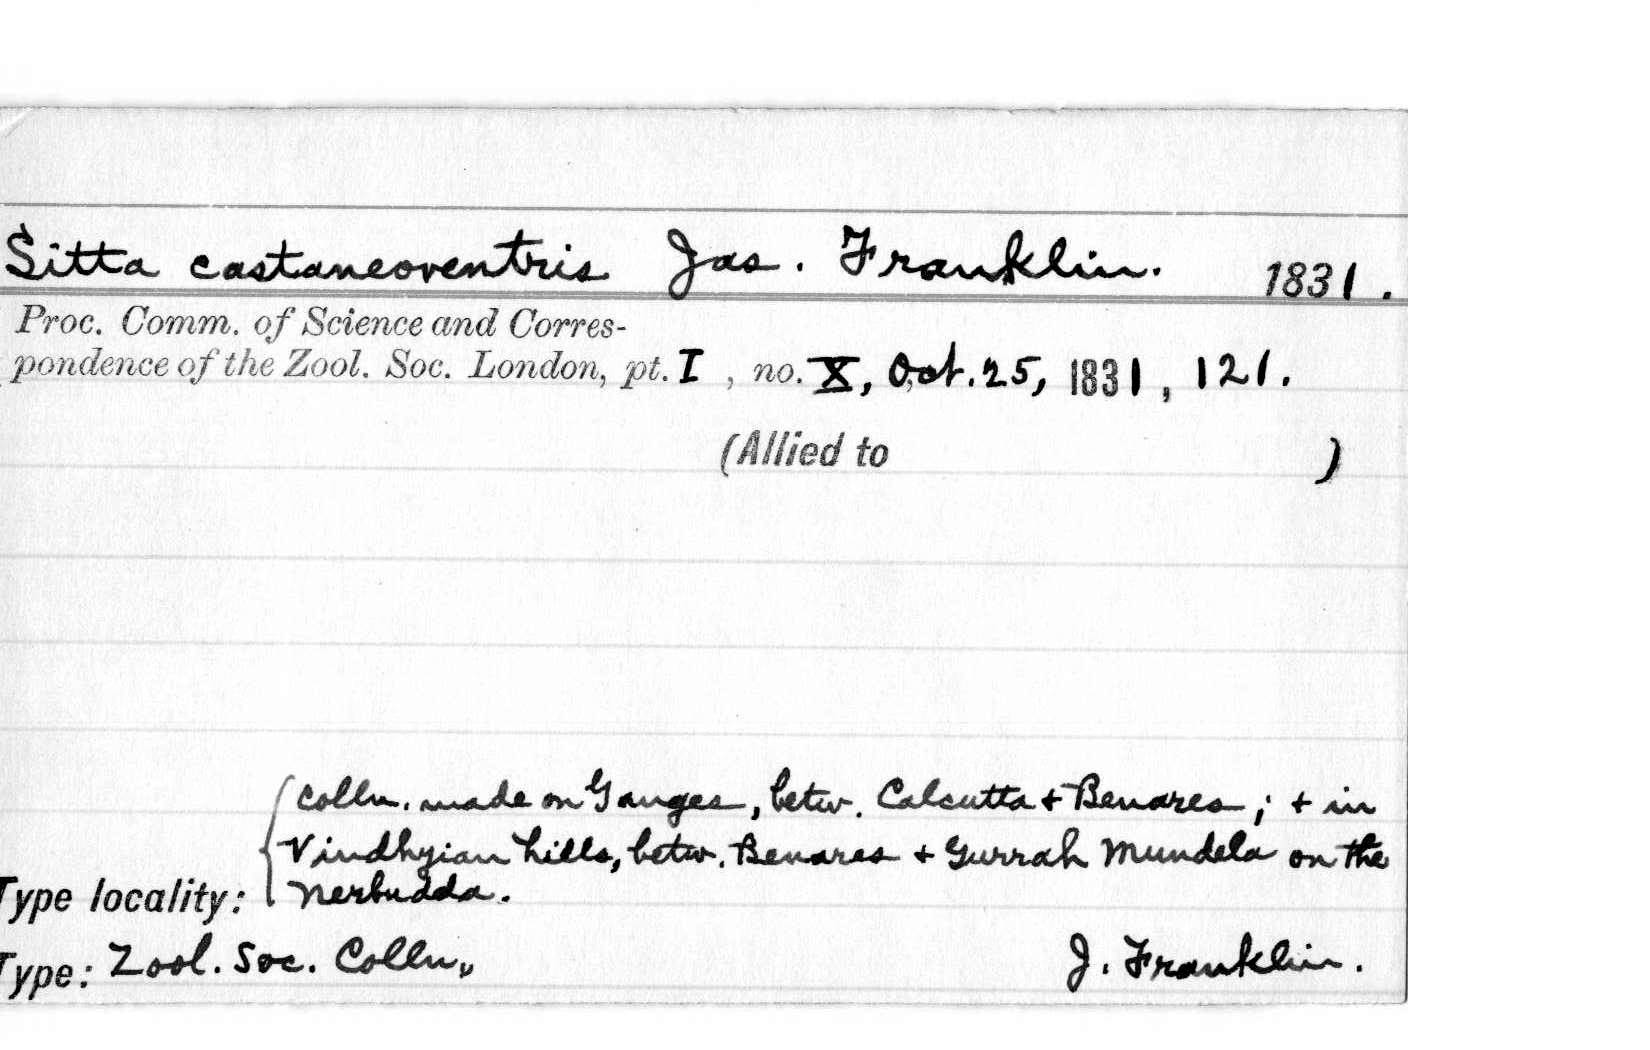 Sitta castaneoventris Jas. Franklin. 1831.
Proc. Comm. of Science and Corres-
pondence of the Zool. Soc. London, pt. I , no. X, Oct. 25, 1831, 121.
(Allied to )
Colln. made on Ganges, betw. Calcutta + Benares; + in
Vindhyian hills, betw. Benares + Gurrah Mundela on the
Type locality: Nerbudda.
Type: Zool. Soc. Colln. J. Franklin.